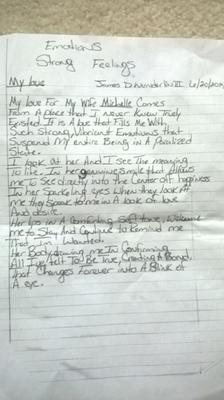 Emotions
Strong Feelings
My Love James D. Wunder Du II 6/20/201
My Love For My Wife Michelle Comes
From A place that I never Knew Truly
Existed. It is A love that Fills Me With
Such Strong, Vibrient Emotions that
Suspend My Entire Being in A Paralized
State.
I look at her And I see The meaning
To life. In her genuine smile that Allows
me To See directly into the Center off happiness
In her sparkling eyes When they look At
me they Speak to me in A look of love
And desire.
Her lips in A Comforting Soft tone, Welcome
me to Stay And Contiue to Remind me
That im Wanted.
Her Body drawing me In Confirming
All I've felt To Be true, Creating A Bond
that Changes Forever into A Blink of
A eye.